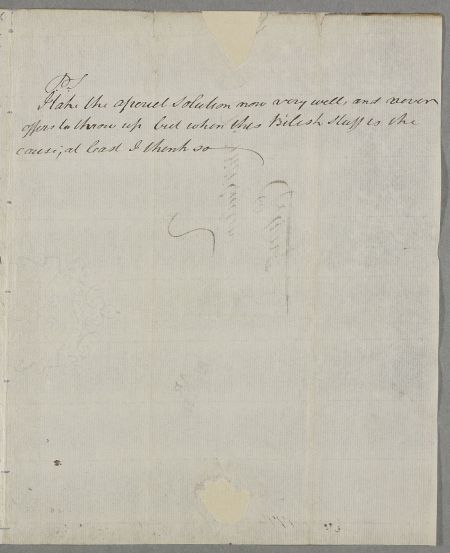 PS
I take the aperiet Solution now very well, and never
offers to throw up but when this Bilish Stuff is the
cause, at least I think so